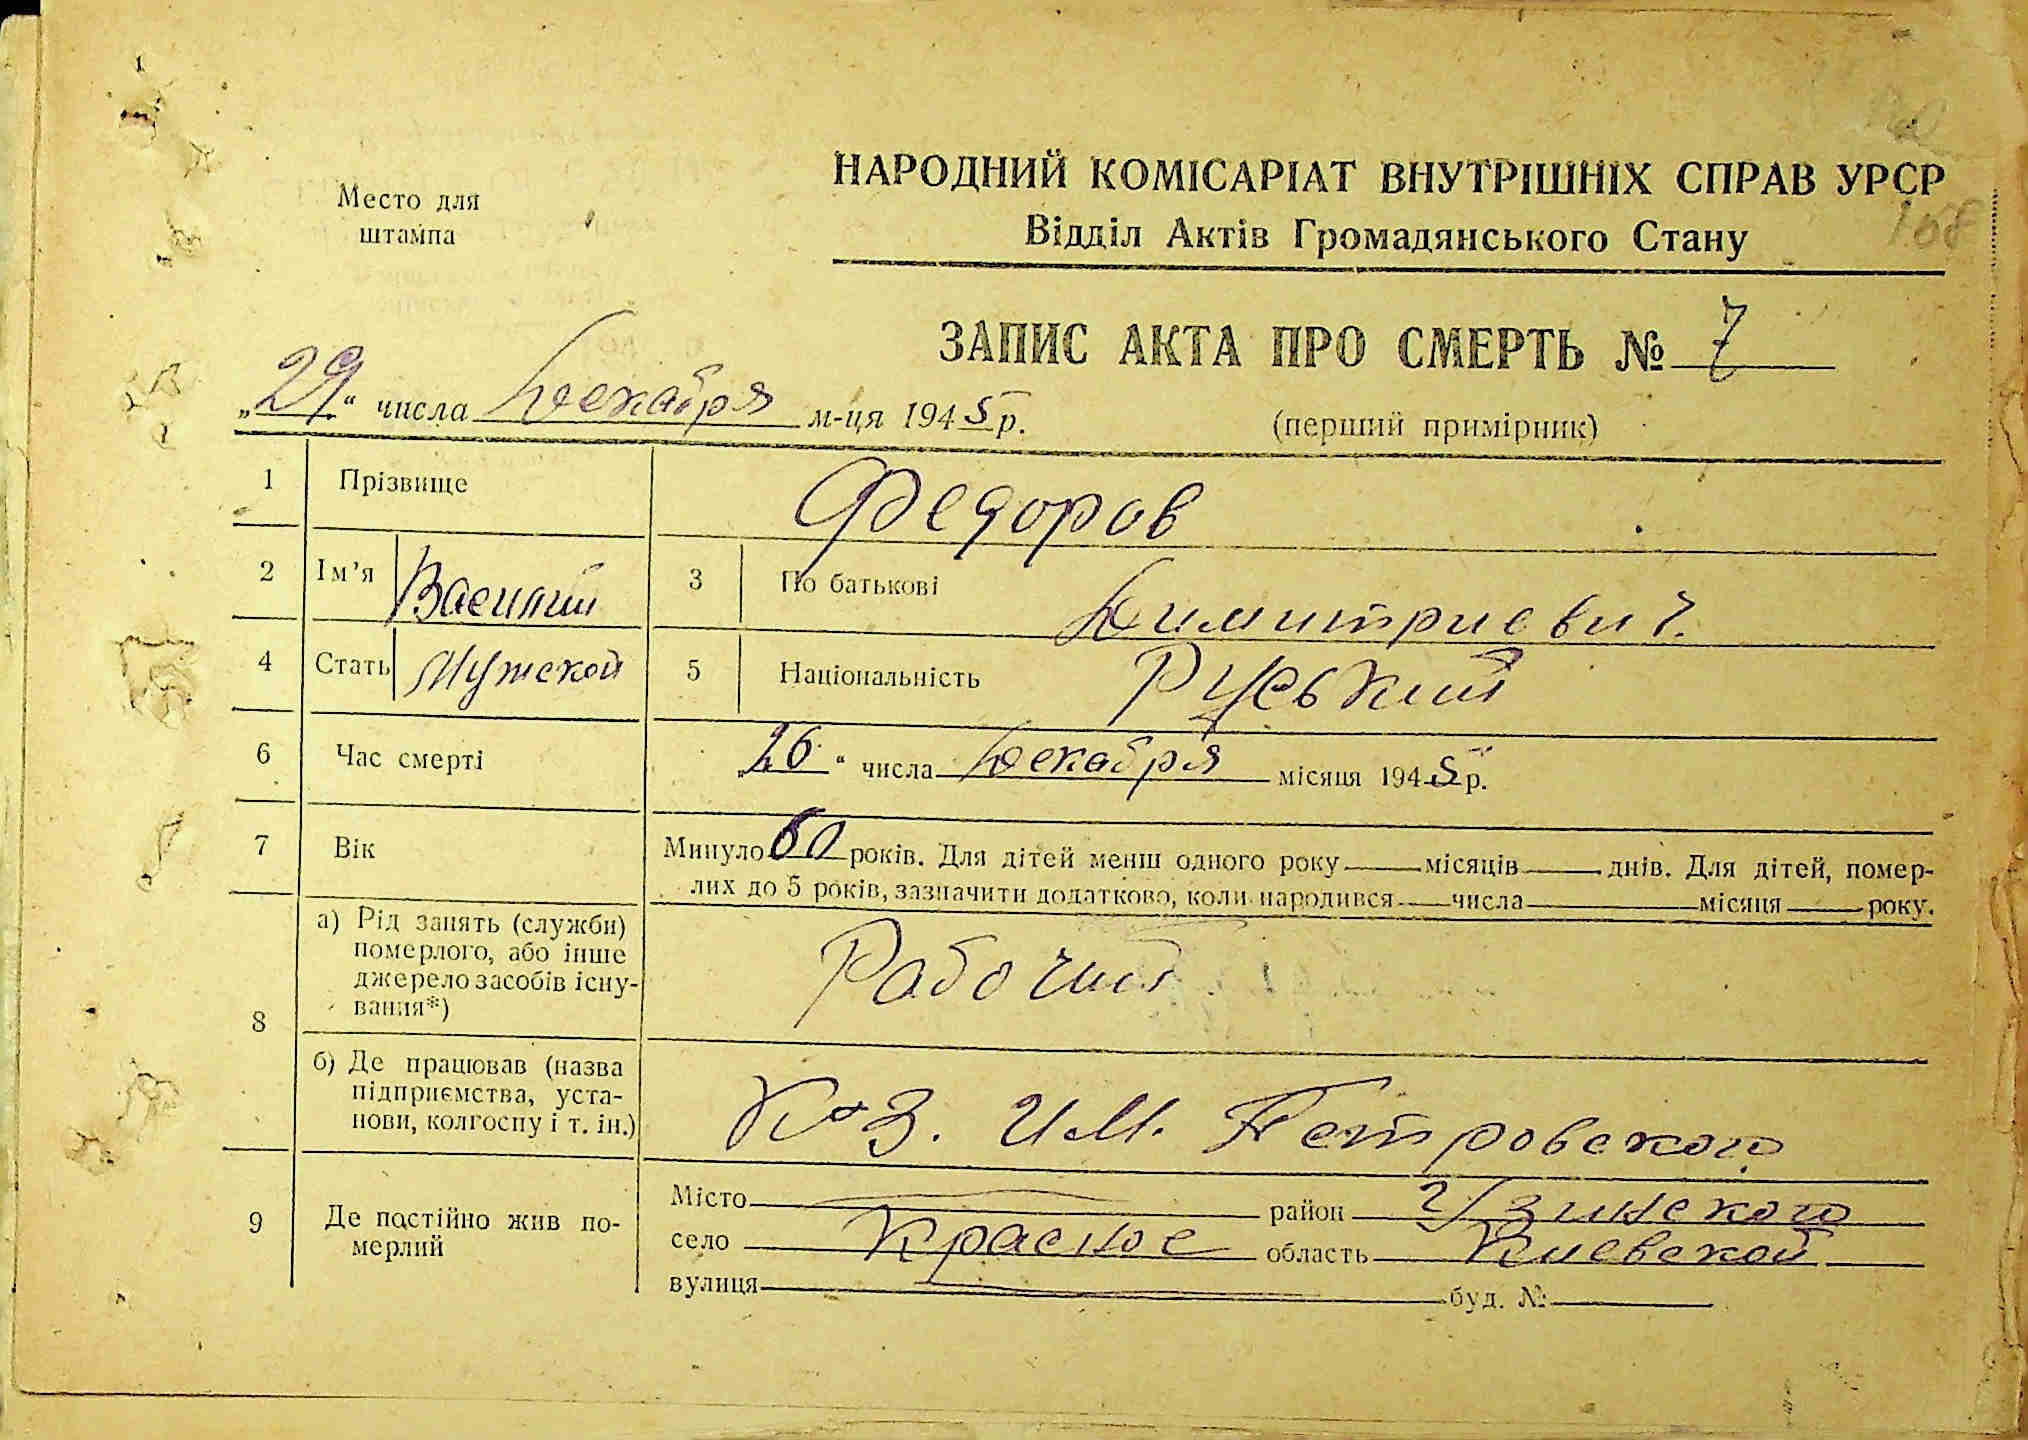 Место для
штампа
НАРОДНИЙ КОМІСАРІАТ ВНУТРІШНІХ СПРАВ УРСР
Відділ Актів Громадянського Стану
168
ЗАПИС АКТА ПРО СМЕРТЬ № 7
„29“ числа Декабря м-ця 1945 р.
(перший примірник)
1 Прізвище Федоров
2 Ім'я Василий 3 По батькові Димитриевич.
4 Стать Мужской 5 Національність Руський
6 Час смерті „26“ числа Декабря місяця 1945 р.
7 Вік Минуло 60 років. Для дітей менш одного року місяців днів. Для дітей, помер-
лих до 5 років, зазначити додатково, коли народився числа місяця року.
8 а) Рід занять (служби)
померлого, або інше
джерело засобів існу-
вання*)
Рабочий
б) Де працював (назва
підприємства, уста-
нови, колгоспу і т. ін.)
К-з. им. Петровского
9 Де постійно жив по-
мерлий
Місто район Узинского
село Красное область Киевской
вулиця буд. №